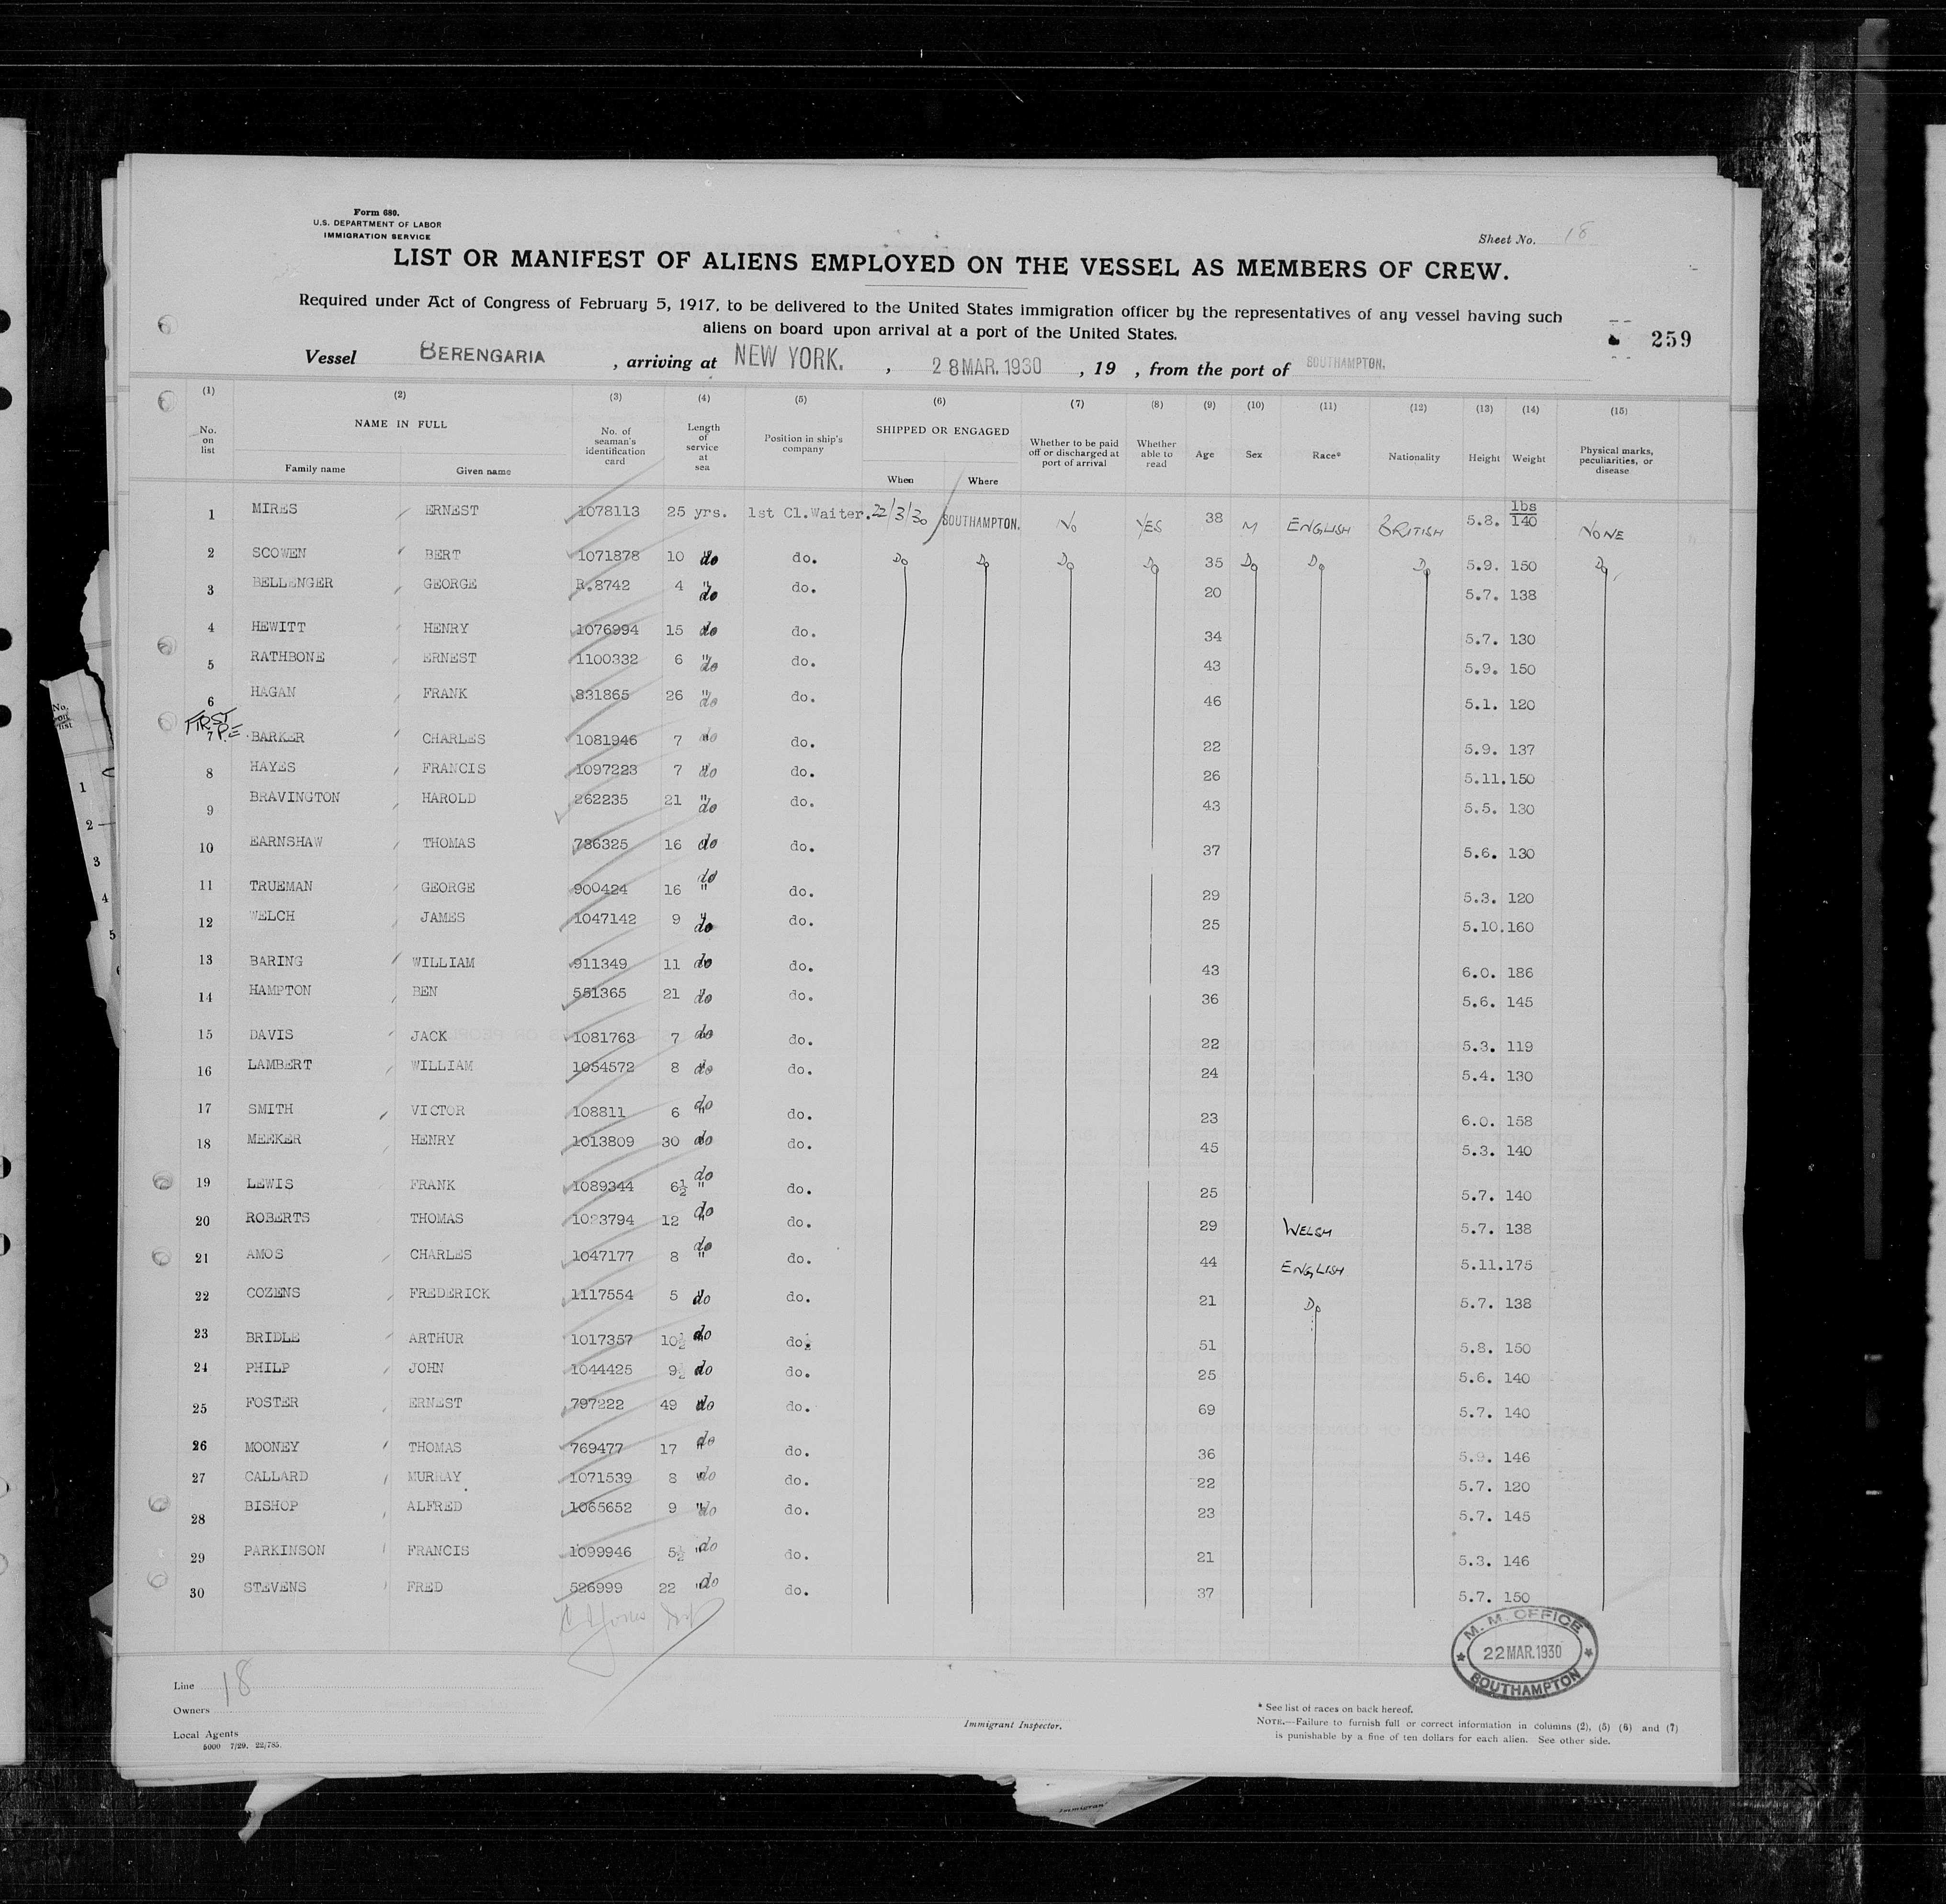 Form 680.
U.S. DEPARTMENT OF LABOR
IMMIGRATION SERVICE
Sheet No. 18
LIST OR MANIFEST OF ALIENS EMPLOYED ON THE VESSEL AS MEMBERS OF CREW.
Required under Act of Congress of February 5, 1917, to be delivered to the United States immigration officer by the representatives of any vessel having such
aliens on board upon arrival at a port of the United States.
259
Vessel BERENGARIA , arriving at NEW YORK. , 28 MAR. 1930 , 19 , from the port of SOUTHAMPTON.
(1) (2) (3) (4) (5) (6) (7) (8) (9) (10) (11) (12) (13) (14) (15)
No. on list NAME IN FULL Family name Given name No. of seaman's identification card Length of service at sea Position in ship's company SHIPPED OR ENGAGED When Where Whether to be paid off or discharged at port of arrival Whether able to read Age Sex Race* Nationality Height Weight Physical marks, peculiarities, or disease
1 MIRES ERNEST 1078113 25 yrs. 1st Cl. Waiter. 22/3/30 SOUTHAMPTON. No YES 38 M ENGLISH BRITISH 5.8. lbs 140 NONE
2 SCOWEN BERT 1071878 10 " do do. Do Do Do Do 35 Do Do Do 5.9. 150 Do
3 BELLENGER GEORGE R.8742 4 " do do. 20 5.7. 138
4 HEWITT HENRY 1076994 15 " do do. 34 5.7. 130
5 RATHBONE ERNEST 1100332 6 " do do. 43 5.9. 150
6 HAGAN FRANK 831865 26 " do do. 46 5.1. 120
FIRST P.E.
7 BARKER CHARLES 1081946 7 " do do. 22 5.9. 137
8 HAYES FRANCIS 1097223 7 " do do. 26 5.11. 150
9 BRAVINGTON HAROLD 262235 21 " do do. 43 5.5. 130
10 EARNSHAW THOMAS 786325 16 " do do. 37 5.6. 130
11 TRUEMAN GEORGE 900424 16 " do do. 29 5.3. 120
12 WELCH JAMES 1047142 9 " do do. 25 5.10. 160
13 BARING WILLIAM 911349 11 " do do. 43 6.0. 186
14 HAMPTON BEN 551365 21 " do do. 36 5.6. 145
15 DAVIS JACK 1081763 7 " do do. 22 5.3. 119
16 LAMBERT WILLIAM 1054572 8 " do do. 24 5.4. 130
17 SMITH VICTOR 108811 6 " do do. 23 6.0. 158
18 MEEKER HENRY 1013809 30 " do do. 45 5.3. 140
19 LEWIS FRANK 1089344 6½ " do do. 25 5.7. 140
20 ROBERTS THOMAS 12 " do do. 29 WELSH 5.7. 138
21 AMOS CHARLES 1047177 8 " do do. 44 ENGLISH 5.11. 175
22 COZENS FREDERICK 1117554 5 " do do. 21 Do 5.7. 138
23 BRIDLE ARTHUR 1017357 10½ " do do. 51 5.8. 150
24 PHILP JOHN 1044425 9½ " do do. 25 5.6. 140
25 FOSTER ERNEST 797222 49 " do do. 69 5.7. 140
26 MOONEY THOMAS 769477 17 " do do. 36 5.9. 146
27 CALLARD MURRAY 1071539 8 " do do. 22 5.7. 120
28 BISHOP ALFRED 1065652 9 " do do. 23 5.7. 145
29 PARKINSON FRANCIS 1099946 5½ " do do. 21 5.3. 146
30 STEVENS FRED 526999 22 " do do. 37 5.7. 150
M. M. OFFICE
22 MAR. 1930
SOUTHAMPTON
Line 18
Owners
Local Agents
5000 7/29. 22/785.
Immigrant Inspector.
* See list of races on back hereof.
NOTE.—Failure to furnish full or correct information in columns (2), (5) (6) and (7)
is punishable by a fine of ten dollars for each alien. See other side.